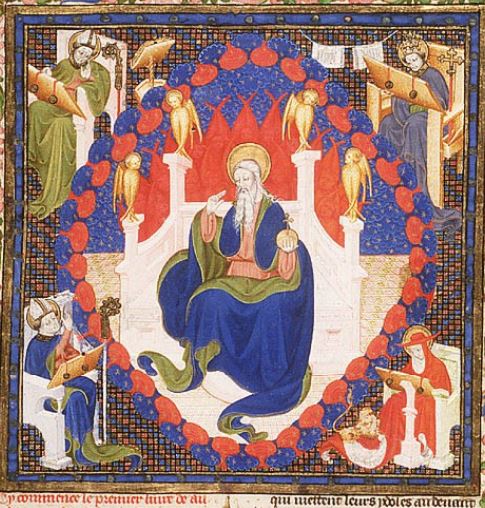 Cy commence le premier liure de au
qui mettent leurs ydoles audeuant